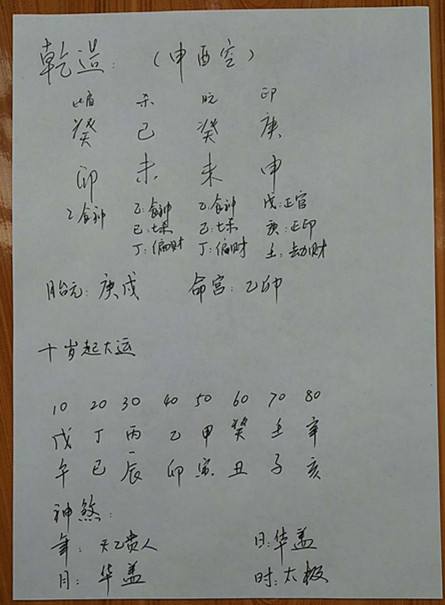 乾造：（申酉空）
比肩 杀 日元 印
癸 己 癸 庚
卯 未 未 申
乙食神 乙:食神 乙:食神 戊:正官
己:七杀 己:七杀 庚:正印
丁:偏财 丁:偏财 壬:劫财
胎元：庚戌 命宫：乙卯
十岁起大运
10 20 30 40 50 60 70 80
戊 丁 丙 乙 甲 癸 壬 辛
午 巳 辰 卯 寅 丑 子 亥
神煞：
年：天乙贵人 日:华盖
月：华盖 时:太极